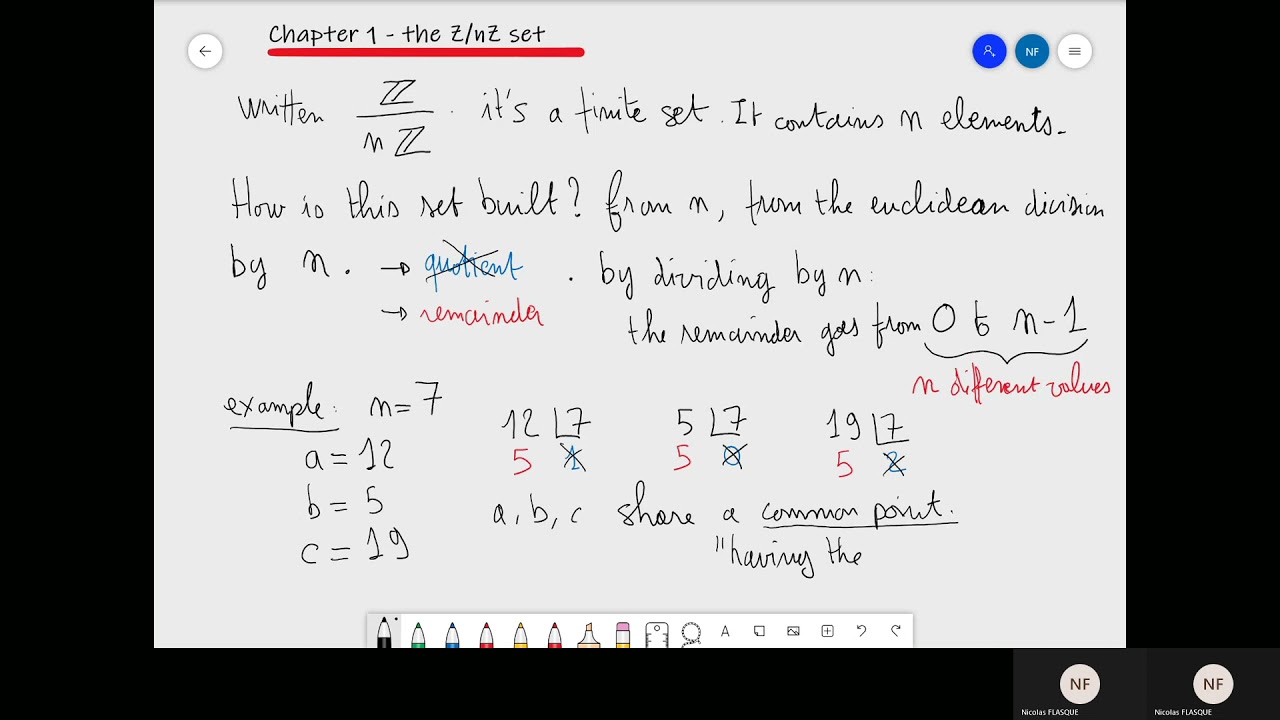 Chapter 1 - the Z/nZ set
NF
written ℤ/nℤ . it's a finite set. It contains n elements.
How is this set built? from n, from the euclidean division
by n. → quotient . by dividing by n:
→ remainder
the remainder goes from 0 to n-1
n different values
example: n=7
12 7
5 7
19 7
5 1
5 0
5 2
a = 12
b = 5
c = 19
a, b, c share a common point.
"having the
A
NF
NF
Nicolas FLASQUE
Nicolas FLASQUE